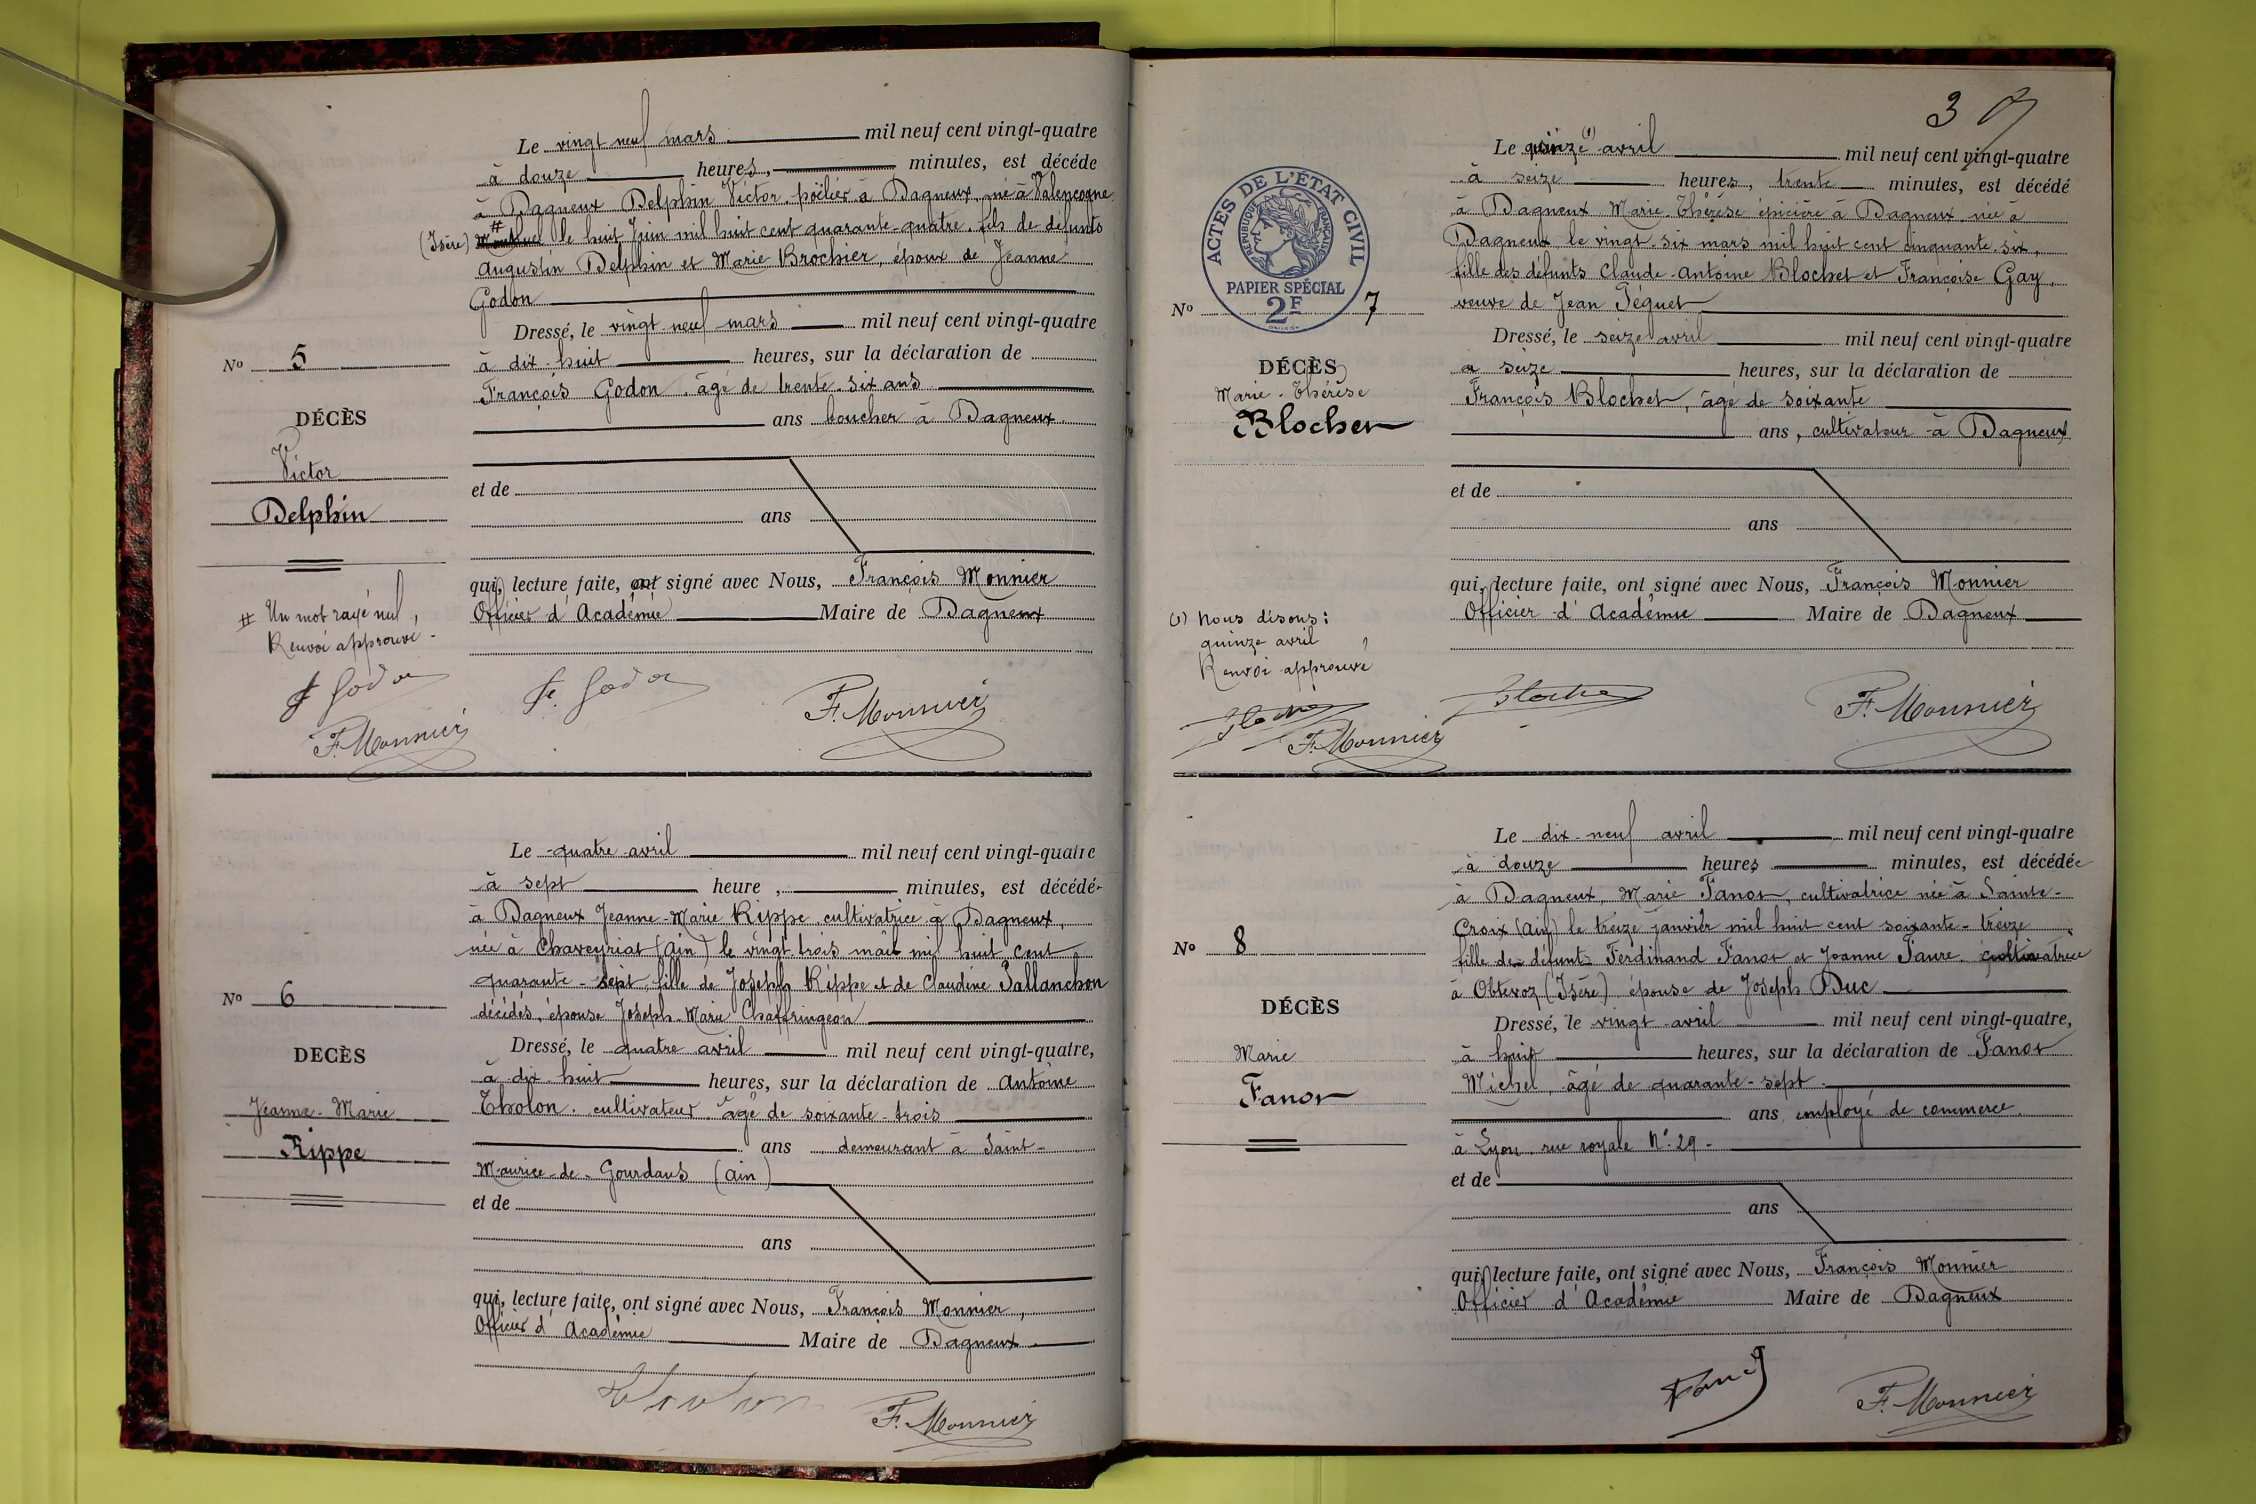 Le vingt neuf mars mil neuf cent vingt-quatre
à douze heures, minutes, est décédé
à Dagneux Delphin Victor, poëlier à Dagneux, né à Valencogne
(Isère) # le huit Juin mil huit cent quarante-quatre. fils de défunts
Augustin Delphin et Marie Brochier, époux de Jeanne
Godon
Dressé, le vingt neuf mars mil neuf cent vingt-quatre
à dix huit heures, sur la déclaration de
François Godon, âgé de trente-six ans
ans boucher à Dagneux
et de
ans
qui, lecture faite, ont signé avec Nous, François Monnier
Officier d'Académie Maire de Dagneux
No 5
DÉCÈS
Victor
Delphin
# Un mot rayé nul,
Renvoi approuvé.
F Godon
F. Monnier
F. Godon
F. Monnier
Le quatre avril mil neuf cent vingt-quatre
à sept heure, minutes, est décédé
à Dagneux Jeanne-Marie Rippe cultivatrice à Dagneux,
née à Chaveyriat (Ain) le vingt trois mai mil huit cent
quarante-sept, fille de Joseph Rippe et de Claudine Pallanchon
décédés, épouse Joseph-Marie Chaffringeon
Dressé, le quatre avril mil neuf cent vingt-quatre,
à dix huit heures, sur la déclaration de Antoine
Tholon. cultivateur âgé de soixante-trois
ans demeurant à Saint-
Maurice-de-Gourdans (Ain)
et de
ans
qui, lecture faite, ont signé avec Nous, François Monnier,
Officier d'Académie Maire de Dagneux
No 6
DECÈS
Jeanne-Marie
Rippe
Tholon
F. Monnier
3
Le quinze (1) avril mil neuf cent vingt-quatre
à seize heures, trente minutes, est décédé
à Dagneux Marie-Thérèse épicière à Dagneux née à
Dagneux le vingt-six mars mil huit cent cinquante-six,
fille des défunts Claude-Antoine Blochet et Françoise Gay,
veuve de Jean Péguet
Dressé, le seize avril mil neuf cent vingt-quatre
à seize heures, sur la déclaration de
François Blochet, âgé de soixante
ans, cultivateur à Dagneux
et de
ans
qui, lecture faite, ont signé avec Nous, François Monnier
Officier d'Académie Maire de Dagneux
ACTES DE L'ÉTAT CIVIL
RÉPUBLIQUE FRANÇAISE
PAPIER SPÉCIAL
2F
No 7
DÉCÈS
Marie-Thérèse
Blochet
(1) Nous disons:
quinze avril,
Renvoi approuvé
Blochet
F. Monnier
Blochet
F. Monnier
Le dix-neuf avril mil neuf cent vingt-quatre
à douze heures minutes, est décédée
à Dagneux, Marie Fanot, cultivatrice née à Sainte-
Croix (Ain) le treize janvier mil huit cent soixante-treize
fille de défunt Ferdinand Fanot et Jeanne Faure, cultivatrice
à Optevoz (Isère), épouse de Joseph Duc
Dressé, le vingt avril mil neuf cent vingt-quatre,
à huit heures, sur la déclaration de Fanot
Michel, âgé de quarante-sept
ans, employé de commerce
à Lyon, rue royale No. 29
et de
ans
qui, lecture faite, ont signé avec Nous, François Monnier
Officier d'Académie Maire de Dagneux
No 8
DÉCÈS
Marie
Fanot
Fanot
F. Monnier